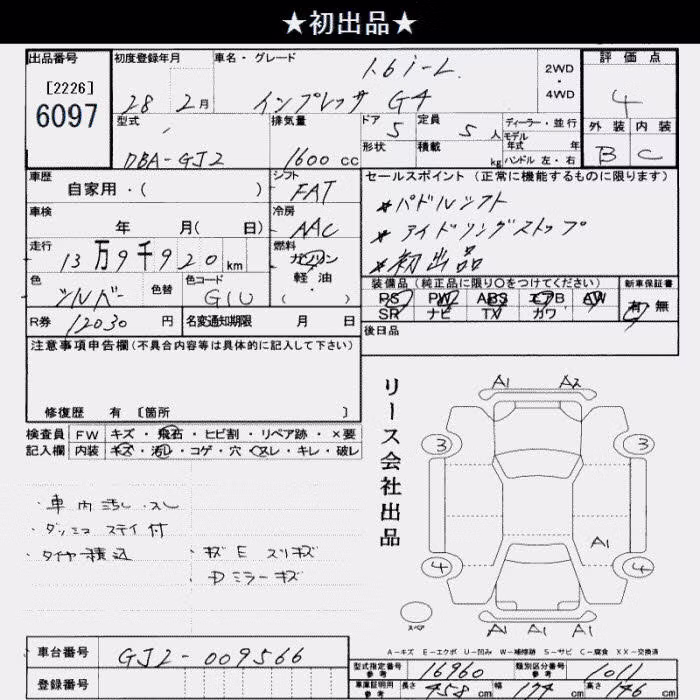 ★初出品★
出品番号 初度登録年月 車名・グレード 1.6i-L 2WD・4WD 評価点
[2226] 6097 28 2月 インプレッサ G4 4
型式 排気量 ドア 5 定員 5 人 ディーラー・並行 外装 内装
DBA-GJ2 1600 cc 形状 積載 kg モデル年式 年 ハンドル 左・右 B C
車歴 自家用・( ) シフト FAT セールスポイント (正常に機能するものに限ります)
車検 年 月( 日) 冷房 AAC *パドルシフト
*アイドリングストップ
走行 13万9千920km 燃料 ガソリン 軽油・( ) *初出品
色 シルバー 色替 色コード G1U 装備品 (純正品に限り○をつけてください) 新車保証書
PS PW ABS エアB AW 有 無
SR ナビ TV カワ
R券 12030 円 名変通知期限 月 日 後日品
注意事項申告欄 (不具合内容等は具体的に記入して下さい)
修復歴 有 [箇所 ]
検査員 FW キズ・飛石・ヒビ割・リペア跡・×要
記入欄 内装 キズ・汚レ・コゲ・穴・スレ・キレ・破レ
リース会社出品
A1 A2
3 3
・車内汚レ.スレ
・ダッシュ ステイ付
・タイヤ積込 ・キズE スリキズ
・Dミラーキズ
A1
4 4
スペア
A1 A1 A1
A-キズ E-エクボ U-凹み W-補修跡 S-サビ C-腐食 XX-交換済
車台番号 GJ2-009566
型式指定番号 参考 16960 類別区分番号 参考 1011
登録番号 車庫証明用 参考 長さ 458 cm 幅 174 cm 高さ 146 cm